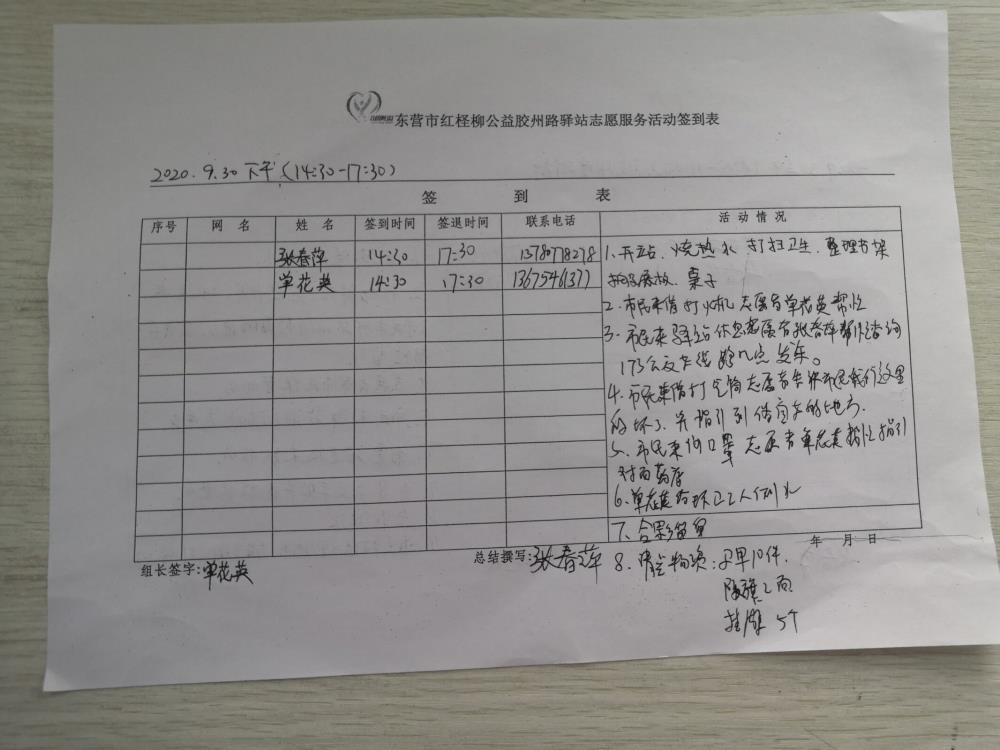 东营市红柽柳公益胶州路驿站志愿服务活动签到表
2020.9.30 下午(14:30-17:30)
签 到 表
序号 网 名 姓 名 签到时间 签退时间 联系电话 活动情况
张春萍 14:30 17:30 13780778278
单花英 14:30 17:30 13675461377
1、开站、烧热水 打扫卫生、整理书架
桌子
2、市民来借打火机 志愿者单花英帮忙
3、市民来驿站休息志愿者张春萍帮忙查询
173公交车线路几点发车。
4、市民来借打气筒志愿者告诉市民我们这里
的坏了、并指引到借宜方的地方.
5、市民来问口罩 志愿者单花英帮忙指引
对面药房
6、单花英为环卫工人倒水
7、合影留念
年 月 日
组长签字:单花英
总结撰写:张春萍
8、清点物资:马甲10件.
队旗2面
5个